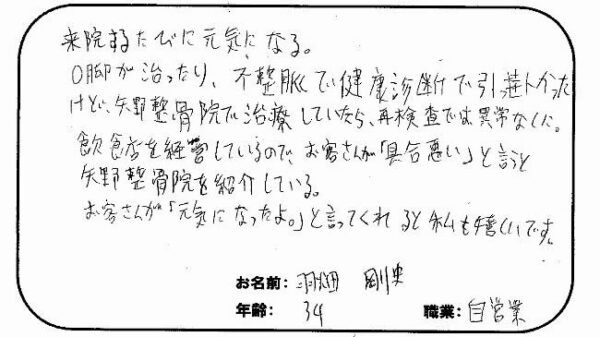 来院するたびに元気になる。
O脚が治ったり、不整脈で健康診断で引っ掛かった
けど、矢野整骨院で治療していたら、再検査では異常なくに。
飲食店を経営しているのでお客さんが「具合悪い」と言うと
矢野整骨院を紹介している。
お客さんが「元気になったよ。」と言ってくれると私も嬉しいです。
お名前: 羽畑 剛史
年齢: 34 職業: 自営業